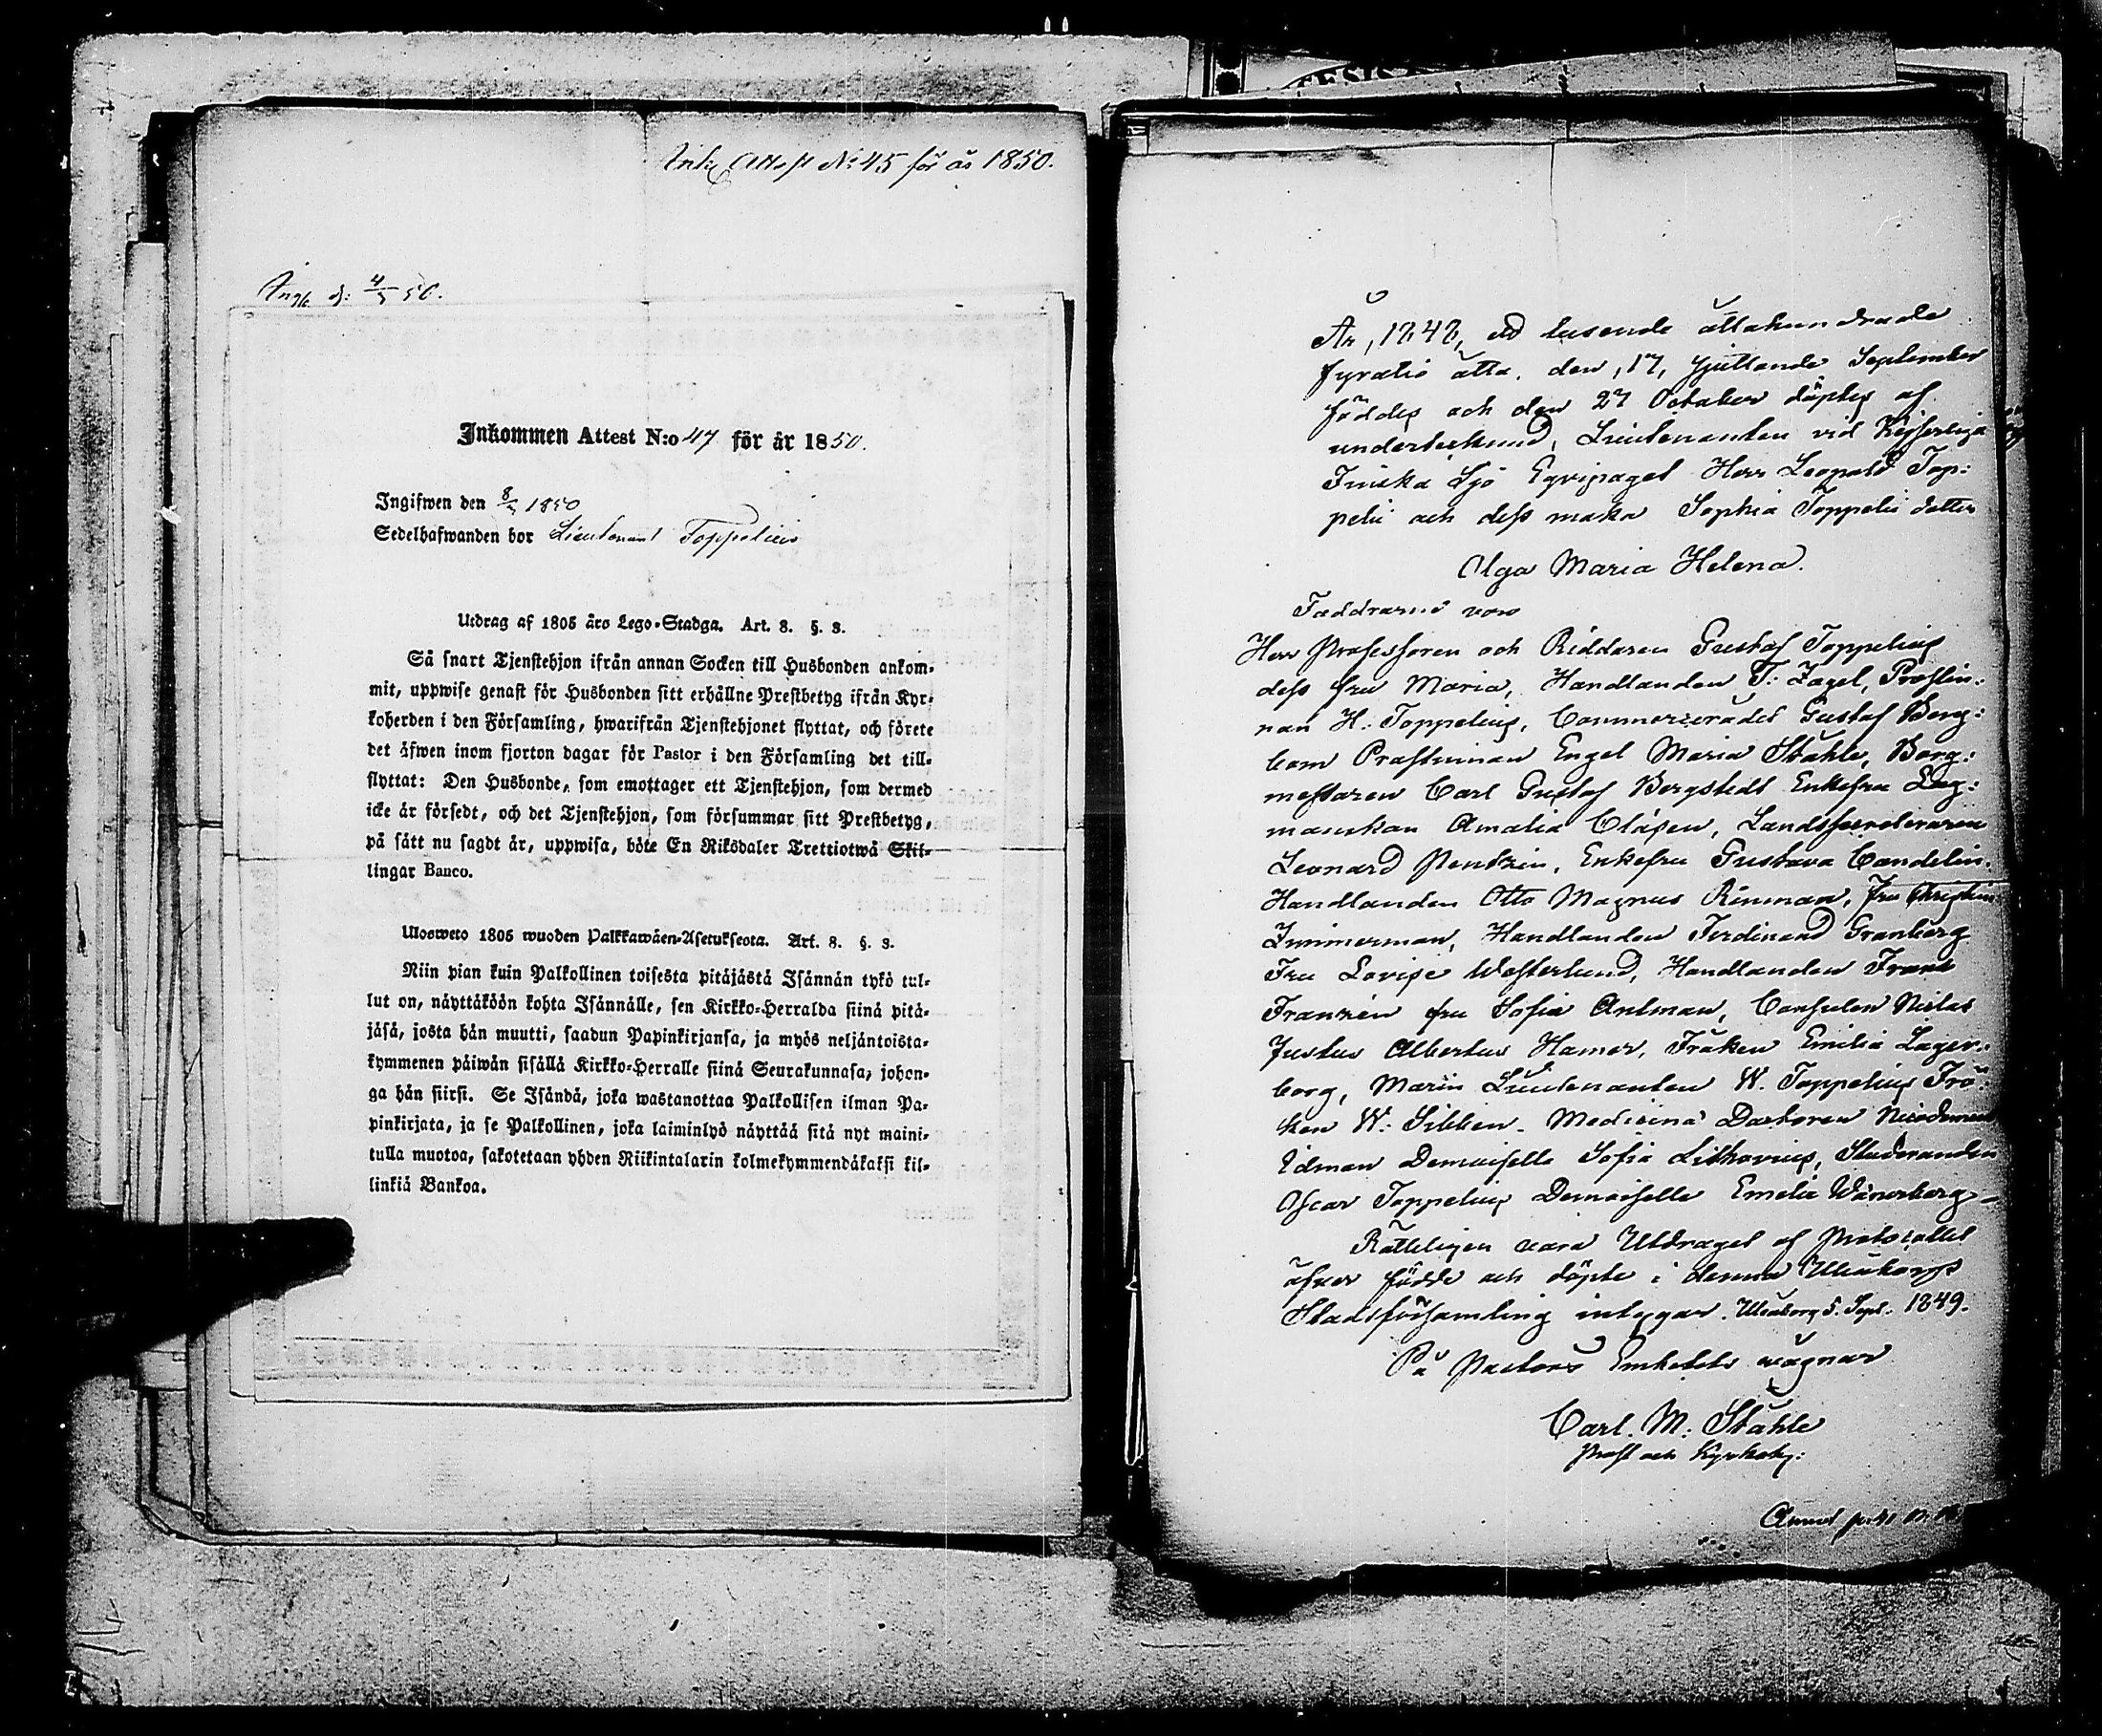 Attest No 45 för år 1850.
Ingk. d: 4/5 50.
Inkommen Attest N:o 47 för år 1850.
Ingifwen den 8/5 1850
Sedelhafwanden bor Lieutenant Toppelius
Utdrag af 1805 års Lego-Stadga. Art. 8. §. 3.
Så snart Tjenstehjon ifrån annan Socken till Husbonden ankom-
mit, uppwise genast för Husbonden sitt erhållne Prestbetyg ifrån Kyr-
koherden i den Församling, hwarifrån Tjenstehjonet flyttat, och förete
det äfwen inom fjorton dagar för Pastor i den Församling det till-
flyttat: Den Husbonde, som emottager ett Tjenstehjon, som dermed
icke är försedt, och det Tjenstehjon, som försummar sitt Prestbetyg,
på sätt nu sagdt är, uppwisa, böte En Riksdaler Trettiotwå Skil-
lingar Banco.
Ulosweto 1805 wuoden Palkkawäen-Asetuksesta. Art. 8. §. 3.
Niin pian kuin Palkollinen toisesta pitäjästä Isännän tykö tul-
lut on, näyttäköön kohta Isännälle, sen Kirkko-Herralda siinä pitä-
jäsä, josta hän muutti, saadun Papinkirjansa, ja myös neljäntoista-
kymmenen päiwän sisällä Kirkko-Herralle siinä Seurakunnasa, johon-
ga hän siirsi. Se Isändä, joka wastanottaa Palkollisen ilman Pa-
pinkirjata, ja se Palkollinen, joka laiminlyö näyttää sitä nyt maini-
tulla muotoa, sakotetaan yhden Riikintalarin kolmekymmendäkaksi kil-
linkiä Bankoa.
År, 1848, ett tusende åttahundrade
fyratio åtta, den, 17, sjuttonde September
föddes och den 27 October döptes af
undertecknad, Lieutenanten vid Kejserliga
Finska Sjö Eqvipaget Herr Leopold Top:
pelii och dess maka Sophia Toppelii dotter
Olga Maria Helena.
Faddrarne voro
Herr Professoren och Riddaren Gustaf Toppelius
dess fru Maria, Handlanden T: Zagel, Prostin:
nan H. Toppelius, Commerserådet Gustaf Berg:
bom Prostinnan Engel Maria Ståhle, Borg:
mestaren Carl Gustaf Bergstedt Enkefru Lag:
manskan Amalia Clasen, Landssecreteraren
Leonard Pentzin, Enkefru Gustava Candelin.
Handlanden Otto Magnus Rönman, fru Christin
Zimmerman, Handlanden Ferdinand Granberg
Fru Lovise Westerlund, Handlanden Frans
Franzén fru Sofia Antman, Consulen Niclas
Justus Albertus Hamer, Fröken Emilia Lager:
borg, Marin Lieutenanten W. Toppelius Frö:
ken W: Sibben. Medicine Doctoren
Idman Demoiselle Sofia Lithovius, Studeranden
Oscar Toppelius Demoiselle Emelia Wänerberg
Rätteligen vara Utdraget af Protocollet
öfver födde och döpte i denna Uleåborgs
Stadsförsamling intygar. Uleåborg 5. Sept. 1849.
På Pastors Embetets vägnar
Carl. M: Ståhle
Prost och Kyrkohj: